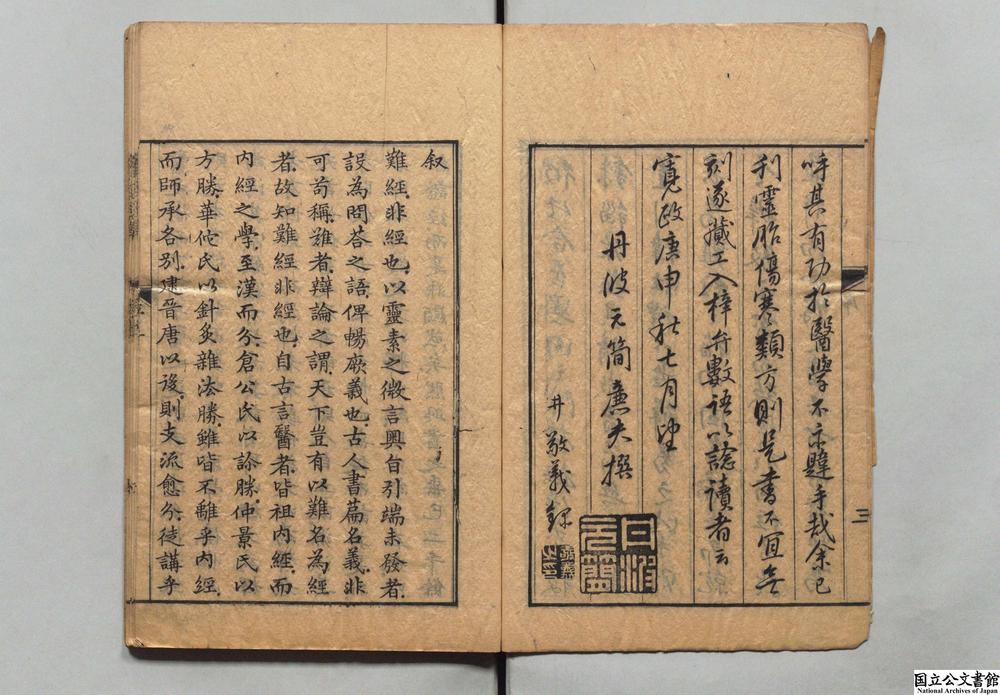 呼其有功於醫學不亦韙乎哉余已
刊靈胎傷寒類方則是書不宜無
刻遂蕆工入梓弁數語以諗讀者云
寛政庚申秋七月望
丹波元簡廉夫撰
井敬義録
丹波元簡
三
叙
難經非經也以靈素之微言奧旨引端未發者
設為問荅之語俾暢厥義也古人書篇名義非
可苟稱難者辯論之謂天下豈有以難名為經
者故知難經非經也自古言醫者皆祖内經而
内經之學至漢而分倉公氏以診勝仲景氏以
方勝華佗氏以針灸雜法勝雖皆不離乎内經
而師承各別逮晉唐以後則支流愈分徒講乎
国立公文書館
National Archives of Japan